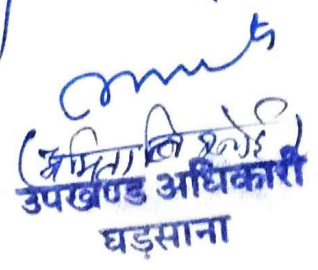 (अमिता बिश्नोई)
उपखण्ड अधिकारी
घड़साना